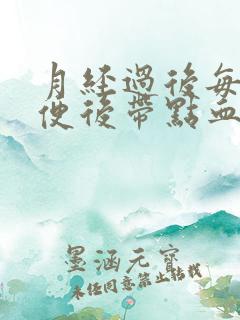 月經過後每
便後帶點血
墨涵元寶
未經同意禁止轉載